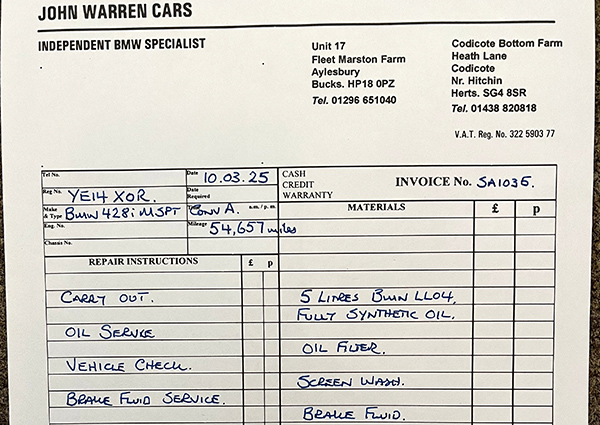 JOHN WARREN CARS
INDEPENDENT BMW SPECIALIST
Unit 17
Fleet Marston Farm
Aylesbury
Bucks. HP18 0PZ
Tel. 01296 651040
Codicote Bottom Farm
Heath Lane
Codicote
Nr. Hitchin
Herts. SG4 8SR
Tel. 01438 820818
V.A.T. Reg. No. 322 5903 77
Tel No.
Date 10.03.25
CASH
CREDIT
WARRANTY
INVOICE No. SA1035.
Reg No. YE14 XOR.
Date Required
Make & Type BMW 428i MSPT
Conv A. a.m./p.m.
MATERIALS £ p
Eng. No.
Mileage 54,657 miles
Chassis No.
REPAIR INSTRUCTIONS £ p
CARRY OUT.
OIL SERVICE
VEHICLE CHECK.
BRAKE FLUID SERVICE.
5 LITRES BMW LL04,
FULLY SYNTHETIC OIL.
OIL FILTER.
SCREEN WASH.
BRAKE FLUID.